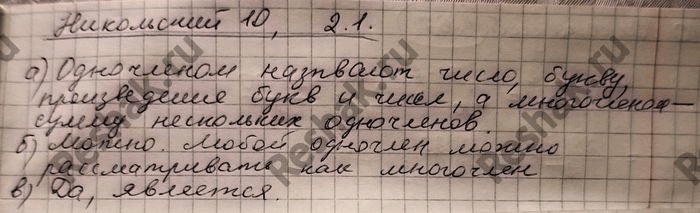 Никольский 10, 2.1.
а) Одночленом называют число, букву,
произведение букв и чисел, а многочленом —
сумму нескольких одночленов.
б) Можно. Любой одночлен можно
рассматривать как многочлен
в) Да, является.
Reshak.ru